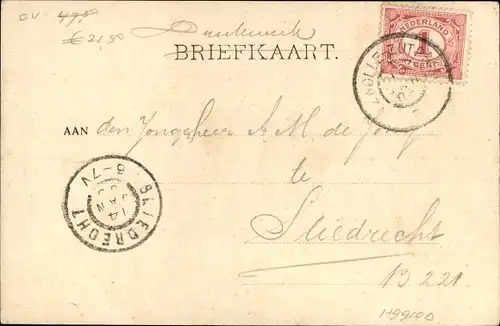 OV. 495
€ 21,50
Drukwerk
BRIEFKAART.
NEDERLAND
1
CENT
ZWOLLE-ZUTPH
AAN den Jongeheer A. M. de Jong
te
Sliedrecht
SLIEDRECHT
14 JAN
6-7N
B 221
H9910D